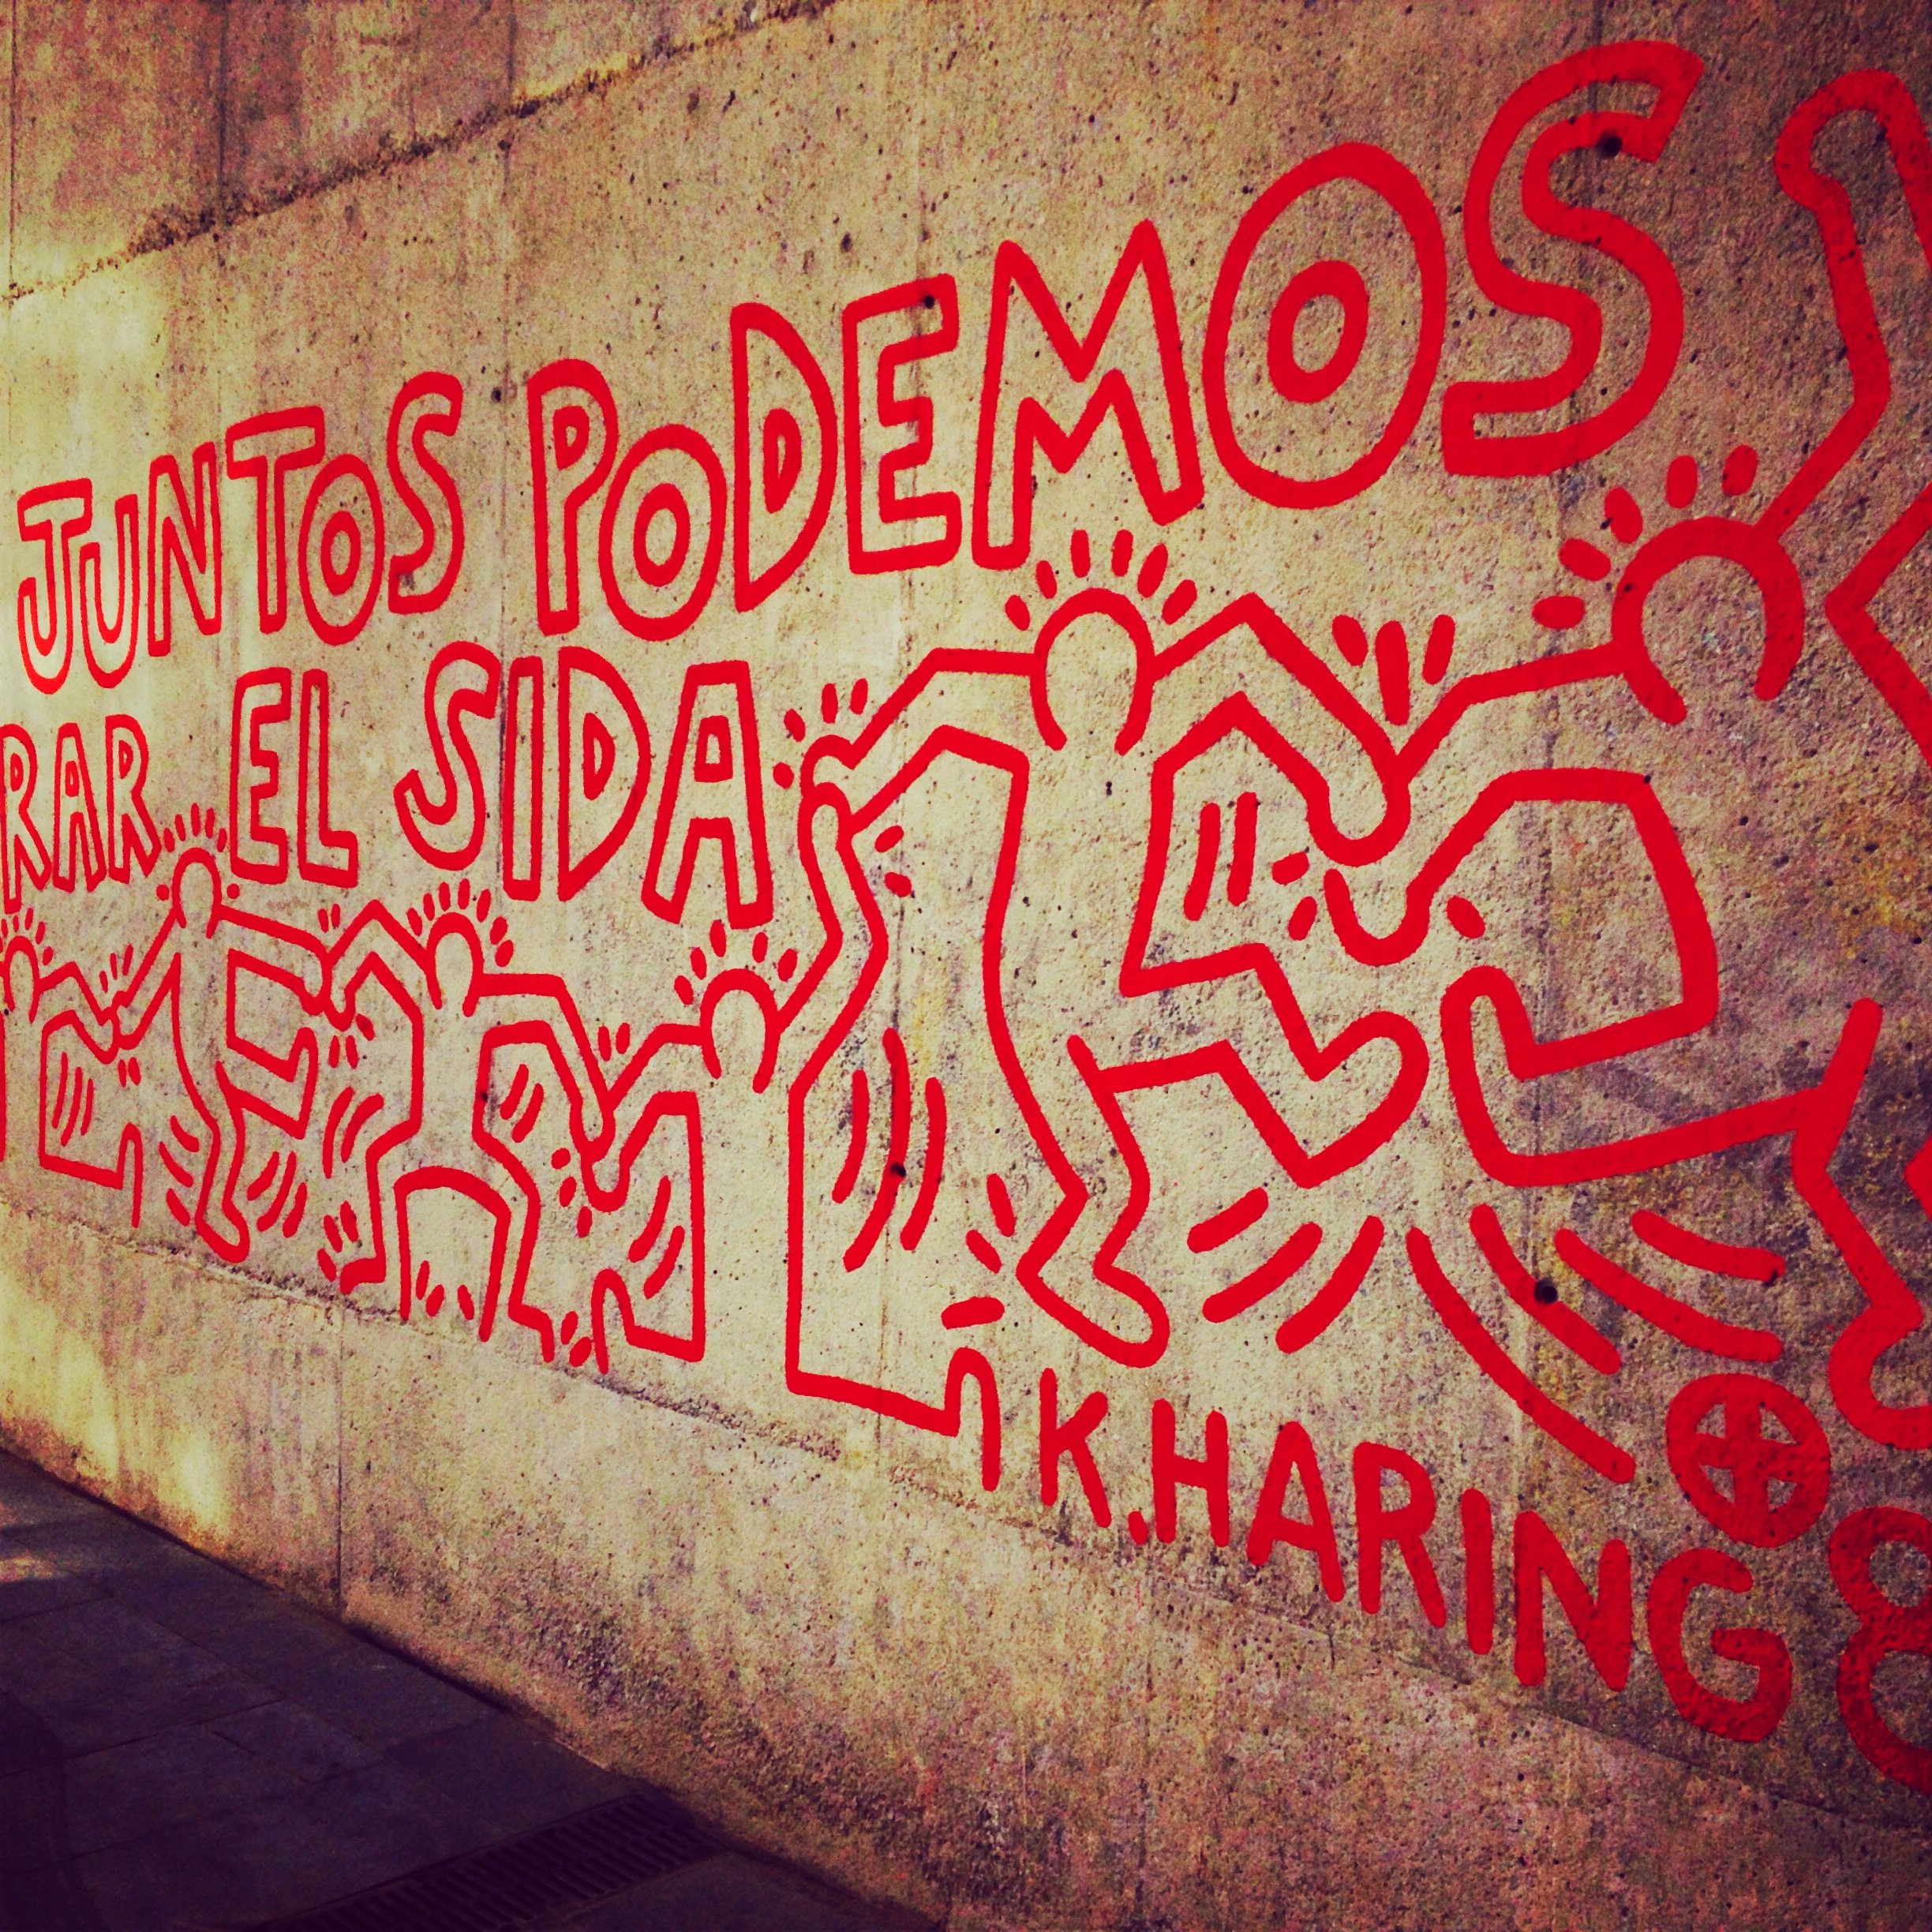 JUNTOS PODEMOS
RAR EL SIDA
K.HARING ⊕ 8